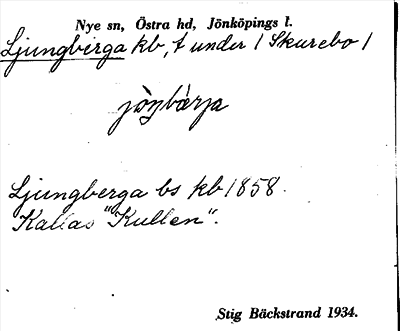 Nye sn, Östra hd, Jönköpings l.
Ljungberga kb, t under 1 Skurebo 1
Ljungberga bs kb 1858.
Kallas "Kullen".
Stig Bäckstrand 1934.